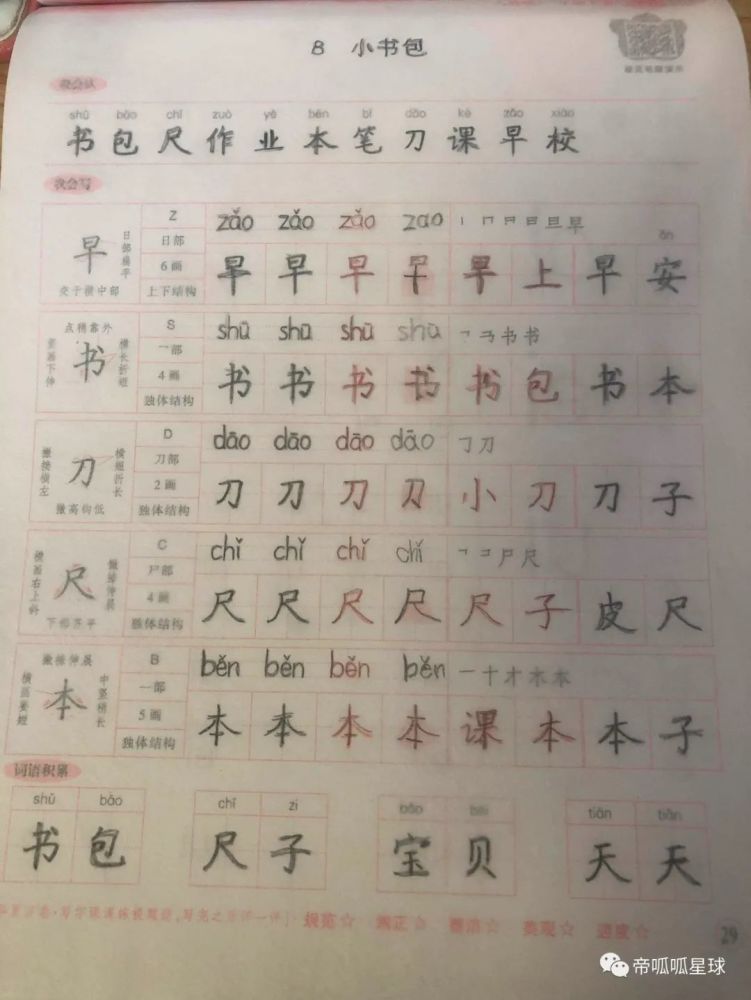 8 小书包
我会认
shū bāo chǐ zuò yè běn bǐ dāo kè zǎo xiào
书 包 尺 作 业 本 笔 刀 课 早 校
我会写
早
日部扁平
交于横中部
Z
日部
6画
上下结构
zǎo zǎo zǎo zǎo
ān
早 早 早 早 早 上 早 安
点稍靠外
竖画下伸
书
横长折短
S
一部
4画
独体结构
shū shū shū shū
书 书 书 书 书 包 书 本
撇接横左
刀
横短折长
撇高钩低
D
刀部
2画
独体结构
dāo dāo dāo dāo
刀 刀 刀 刀 小 刀 刀 子
横画右上斜
尺
撇捺伸展
下部齐平
C
尸部
4画
独体结构
chǐ chǐ chǐ chǐ
尺 尺 尺 尺 尺 子 皮 尺
撇捺伸展
横画要短
本
中竖稍长
B
一部
5画
独体结构
běn běn běn běn
一 十 才 木 本
本 本 本 本 课 本 本 子
词语积累
shū bāo chǐ zi bǎo bèi tiān tiān
书 包 尺 子 宝 贝 天 天
规范☆ 端正☆ 整洁☆ 美观☆ 速度☆
29
帝呱呱星球